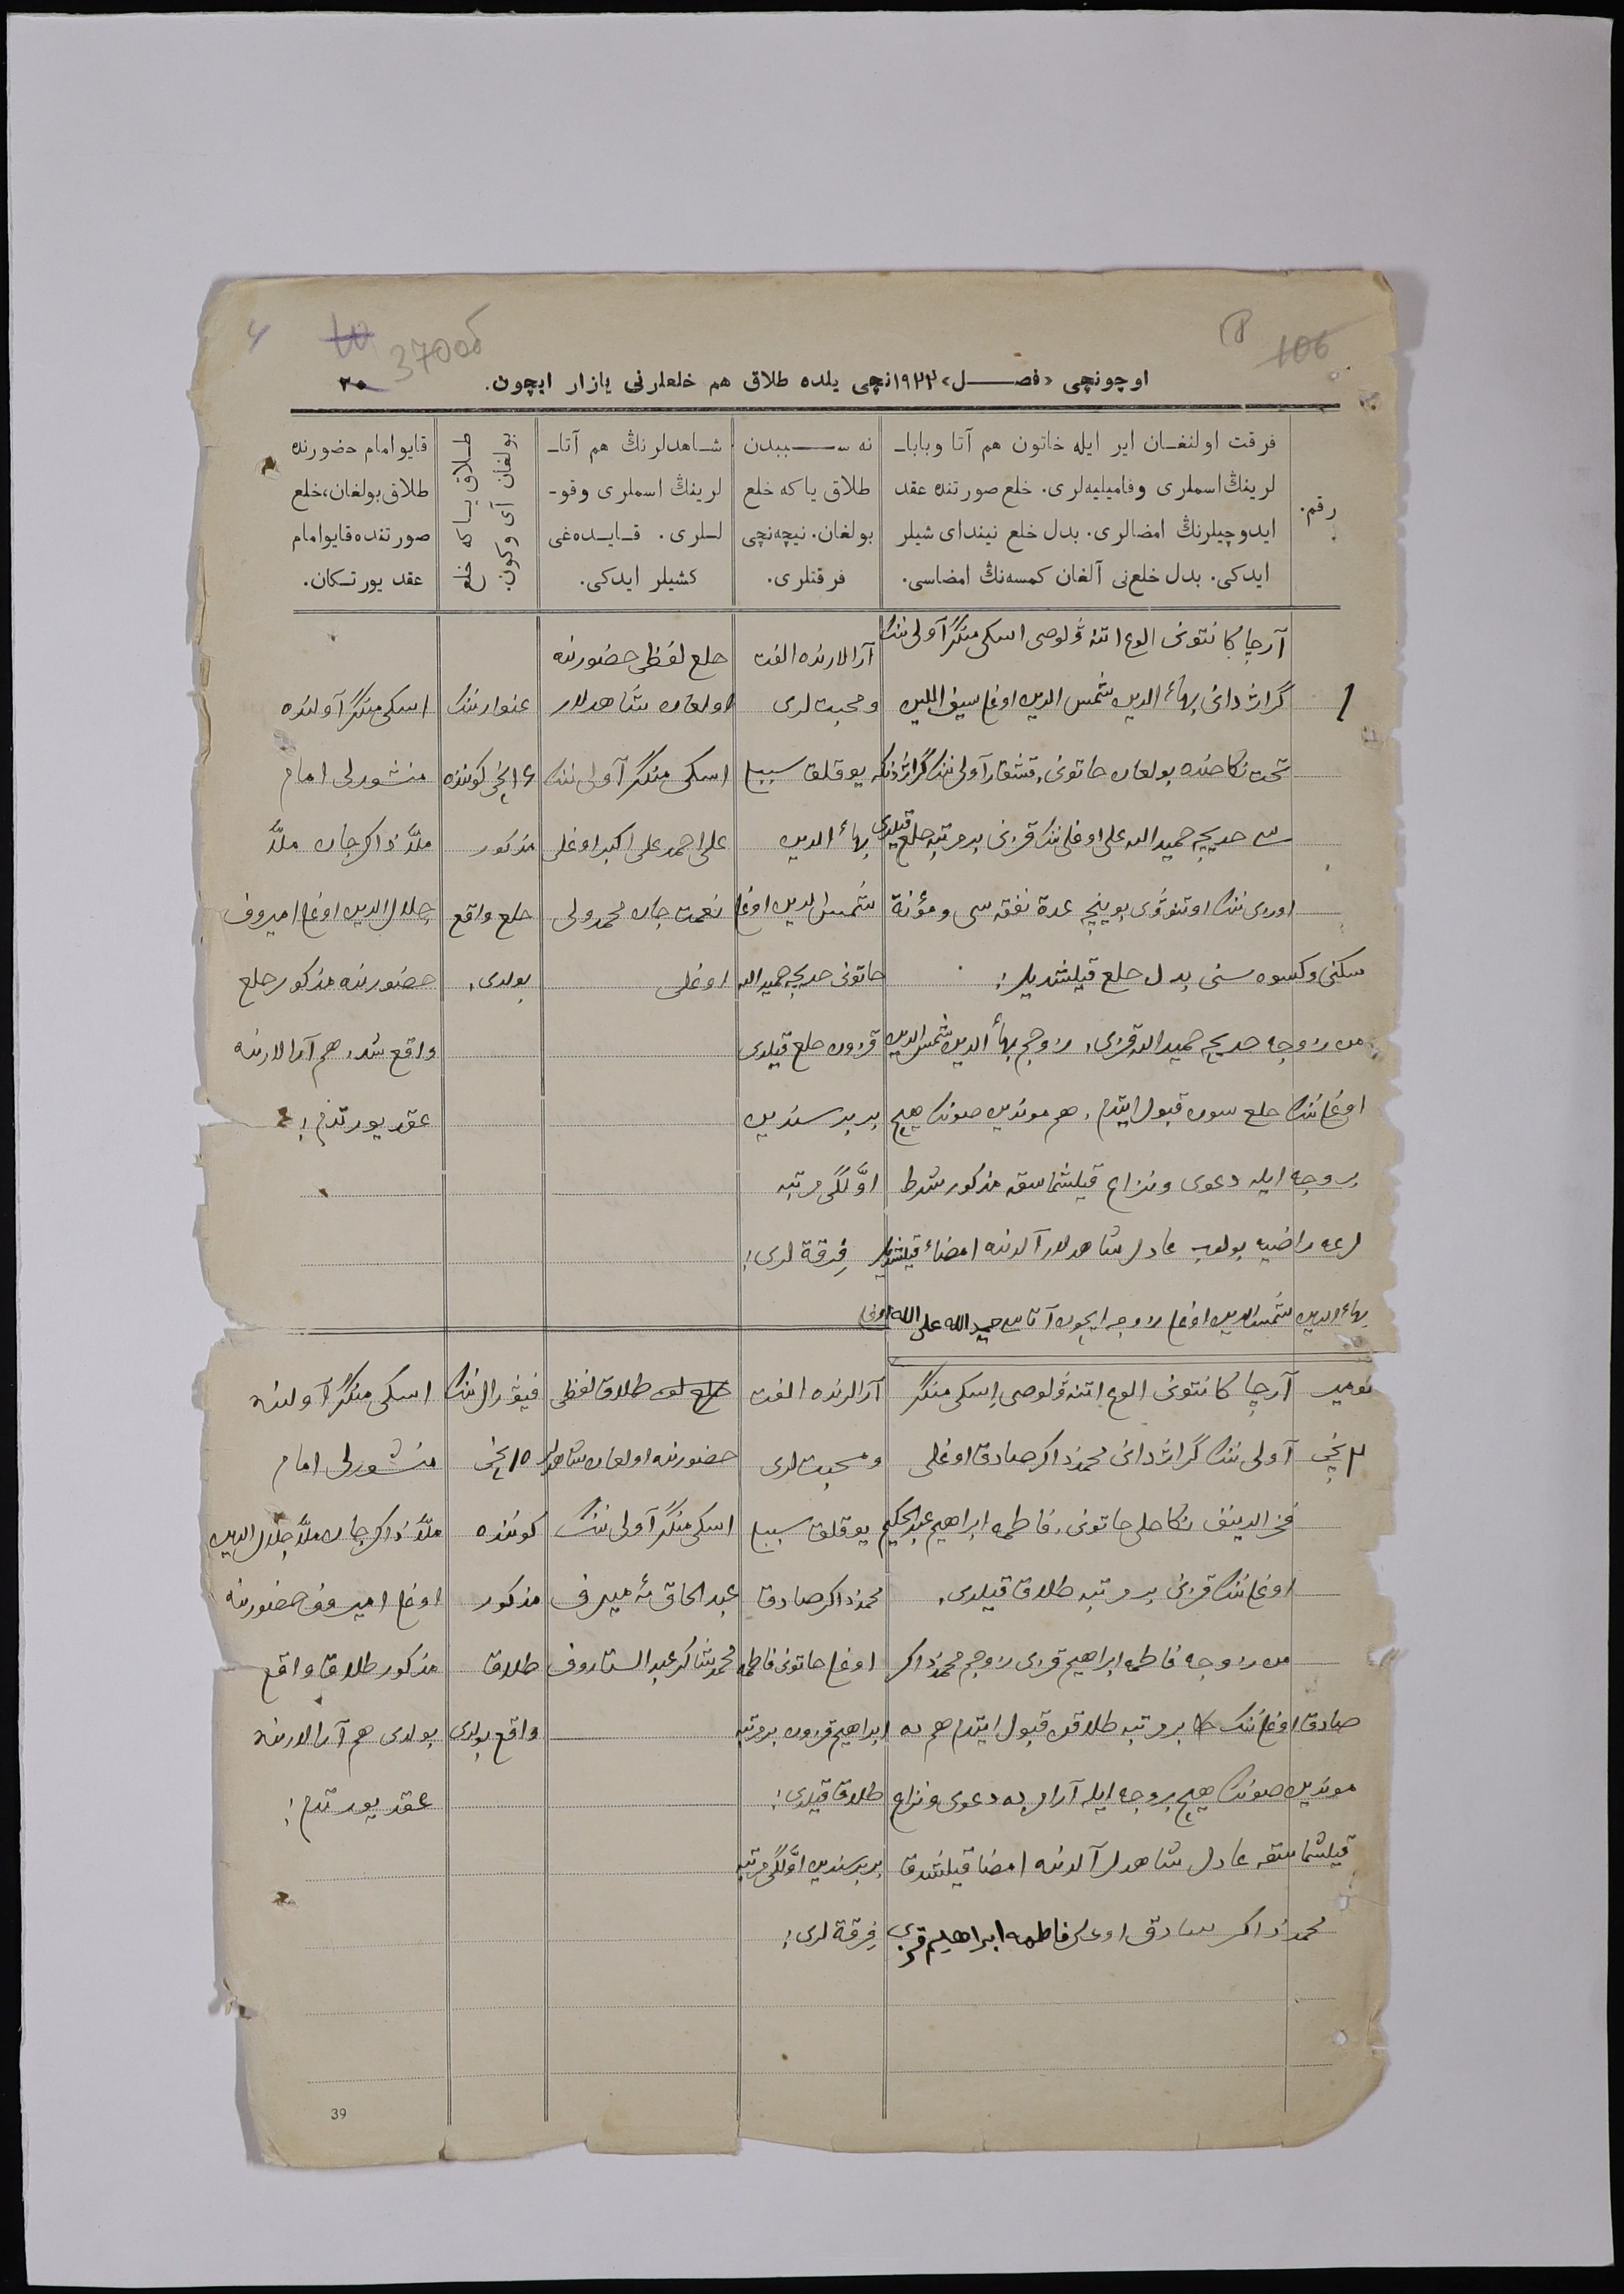 106
3700б
اوچونچی «فصل» ۱۹۲۳نچی یلده طلاق هم خلعلرنی یازار ایچون.
۲۰
رقم.
فرقت اولنغان ایر ایله خاتون هم آتا وبابا-
لرینڭ اسملری وفامیلیه‌لری. خلع صورتنده عقد
ایدوچیلرنڭ امضالری. بدل خلع نیندای شیلر
ایدکی. بدل خلع‌نی آلغان کمسه‌نڭ امضاسی.
نه سببدن
طلاق یا که خلع
بولغان. نیچه‌نچی
فرقتلری.
شاهدلرنڭ هم آتا-
لرینڭ اسملری وقو-
للری. قایده‌غی
کشیلر ایدکی.
طلاق یا که خلع
بولغان آی وکون
قایو امام حضورنده
طلاق بولغان، خلع
صورتنده قایو امام
عقد یورتکان.
1
آرچا کانتونی الوغ اتنه ڤولوصی اسکی منگر آولی ننک
گراژدانی بهاء الدین شمس الدین اوغلی سیف اللین
تحت نکاحنده بولغان خاتونی، قشقار آولی ننک گراژدنکه
سی خدیجه حمید الله علی اوغلی ننک قزنی بر مرتبه خلع قیلدی
اوزی ننک اوتنوۋی بوینچه عدة نفقه سی و مؤنة
سکنی وکسوه سنی بدل خلع قیلشدیلر:
من زوجه خدیجه حمید الله قزی، زوجم بهاء الدین شمس الدین
اوغلی ننک خلع سون قبول ایتدم، هم موندین صونک هیچ
بر وجه ایله دعوی ونزاع قیلشماسقه مذکور شرط
لرغه راضیه بولوب عادل شاهدلار آلدنده امضاء قیلشدیلر
بهاء الدین شمس الدین اوغلی زوجه ایچون آتاسی حمید الله علی الله اوغلی
آرالارنده الفت
ومحبت لری
یوقلق سببلی
بهاء الدین
شمس الدین اوغلی
خاتونی خدیجه حمید الله
قزون خلع قیلدی
بر برسندین
اوّلگی مرتبه
فرقة لری:
خلع لفظی حضورنده
اولغان شاهدلار
اسکی منگر آولی ننک
علی احمد علی اکبر اوغلی
نعمت جان محمد ولی
اوغلی
غنوار ننک
۱۶نچی کوننده
مذکور
خلع واقع
بولدی.
اسکی منگر آولنده
منشورلی امام
ملّا ذاکر جان ملّا
جلال الدین اوغلی امیروف
حضورنده مذکور خلع
واقع شد، هم آرالارنده
عقد یورتدم:
نومیر
۲نچی
آرچا کانتونی الوغ اتنه ڤولوصی اسکی منگر
آولی ننک گراژدانی محمد ذاکر صادق اوغلی
فخر الدینف نکاحلی خاتونی، فاطمه ابراهیم عبد الحکیم
اوغلی ننک قزنی بر مرتبه طلاق قیلدی.
من زوجه فاطمه ابراهیم قزی زوجم محمد ذاکر
صادق اوغلی ننک بر مرتبه طلاقن قبول ایتدم هم ده
موندین صونک هیچ بر وجه ایله آرامزده دعوی ونزاع
قیلشماسقه عادل شاهدلر آلدنده امضا قیلشدق
محمد ذاکر صادق اوغلی فاطمه ابراهیم قزی
آرالرنده الفت
ومحبت لری
یوقلق سببلی
محمد ذاکر صادق
اوغلی خاتونی فاطمه
ابراهیم قزون بر مرتبه
طلاق قیلدی:
بر برسندین اوّلگی مرتبه
فرقة لری:
طلاق لفظی
حضورنده اولغان شاهدلر
اسکی منگر آولی ننک
محمد شاکر عبد الستاروف
فیۋرال ننک
۱۵نچی
کوننده
مذکور
طلاق
واقع بولدی
اسکی منگر آولنده
منشورلی امام
ملّا ذاکر جان ملّا جلال الدین
اوغلی امیروف حضورنده
مذکور طلاق واقع
بولدی هم آرالارنده
عقد یورتدم:
39